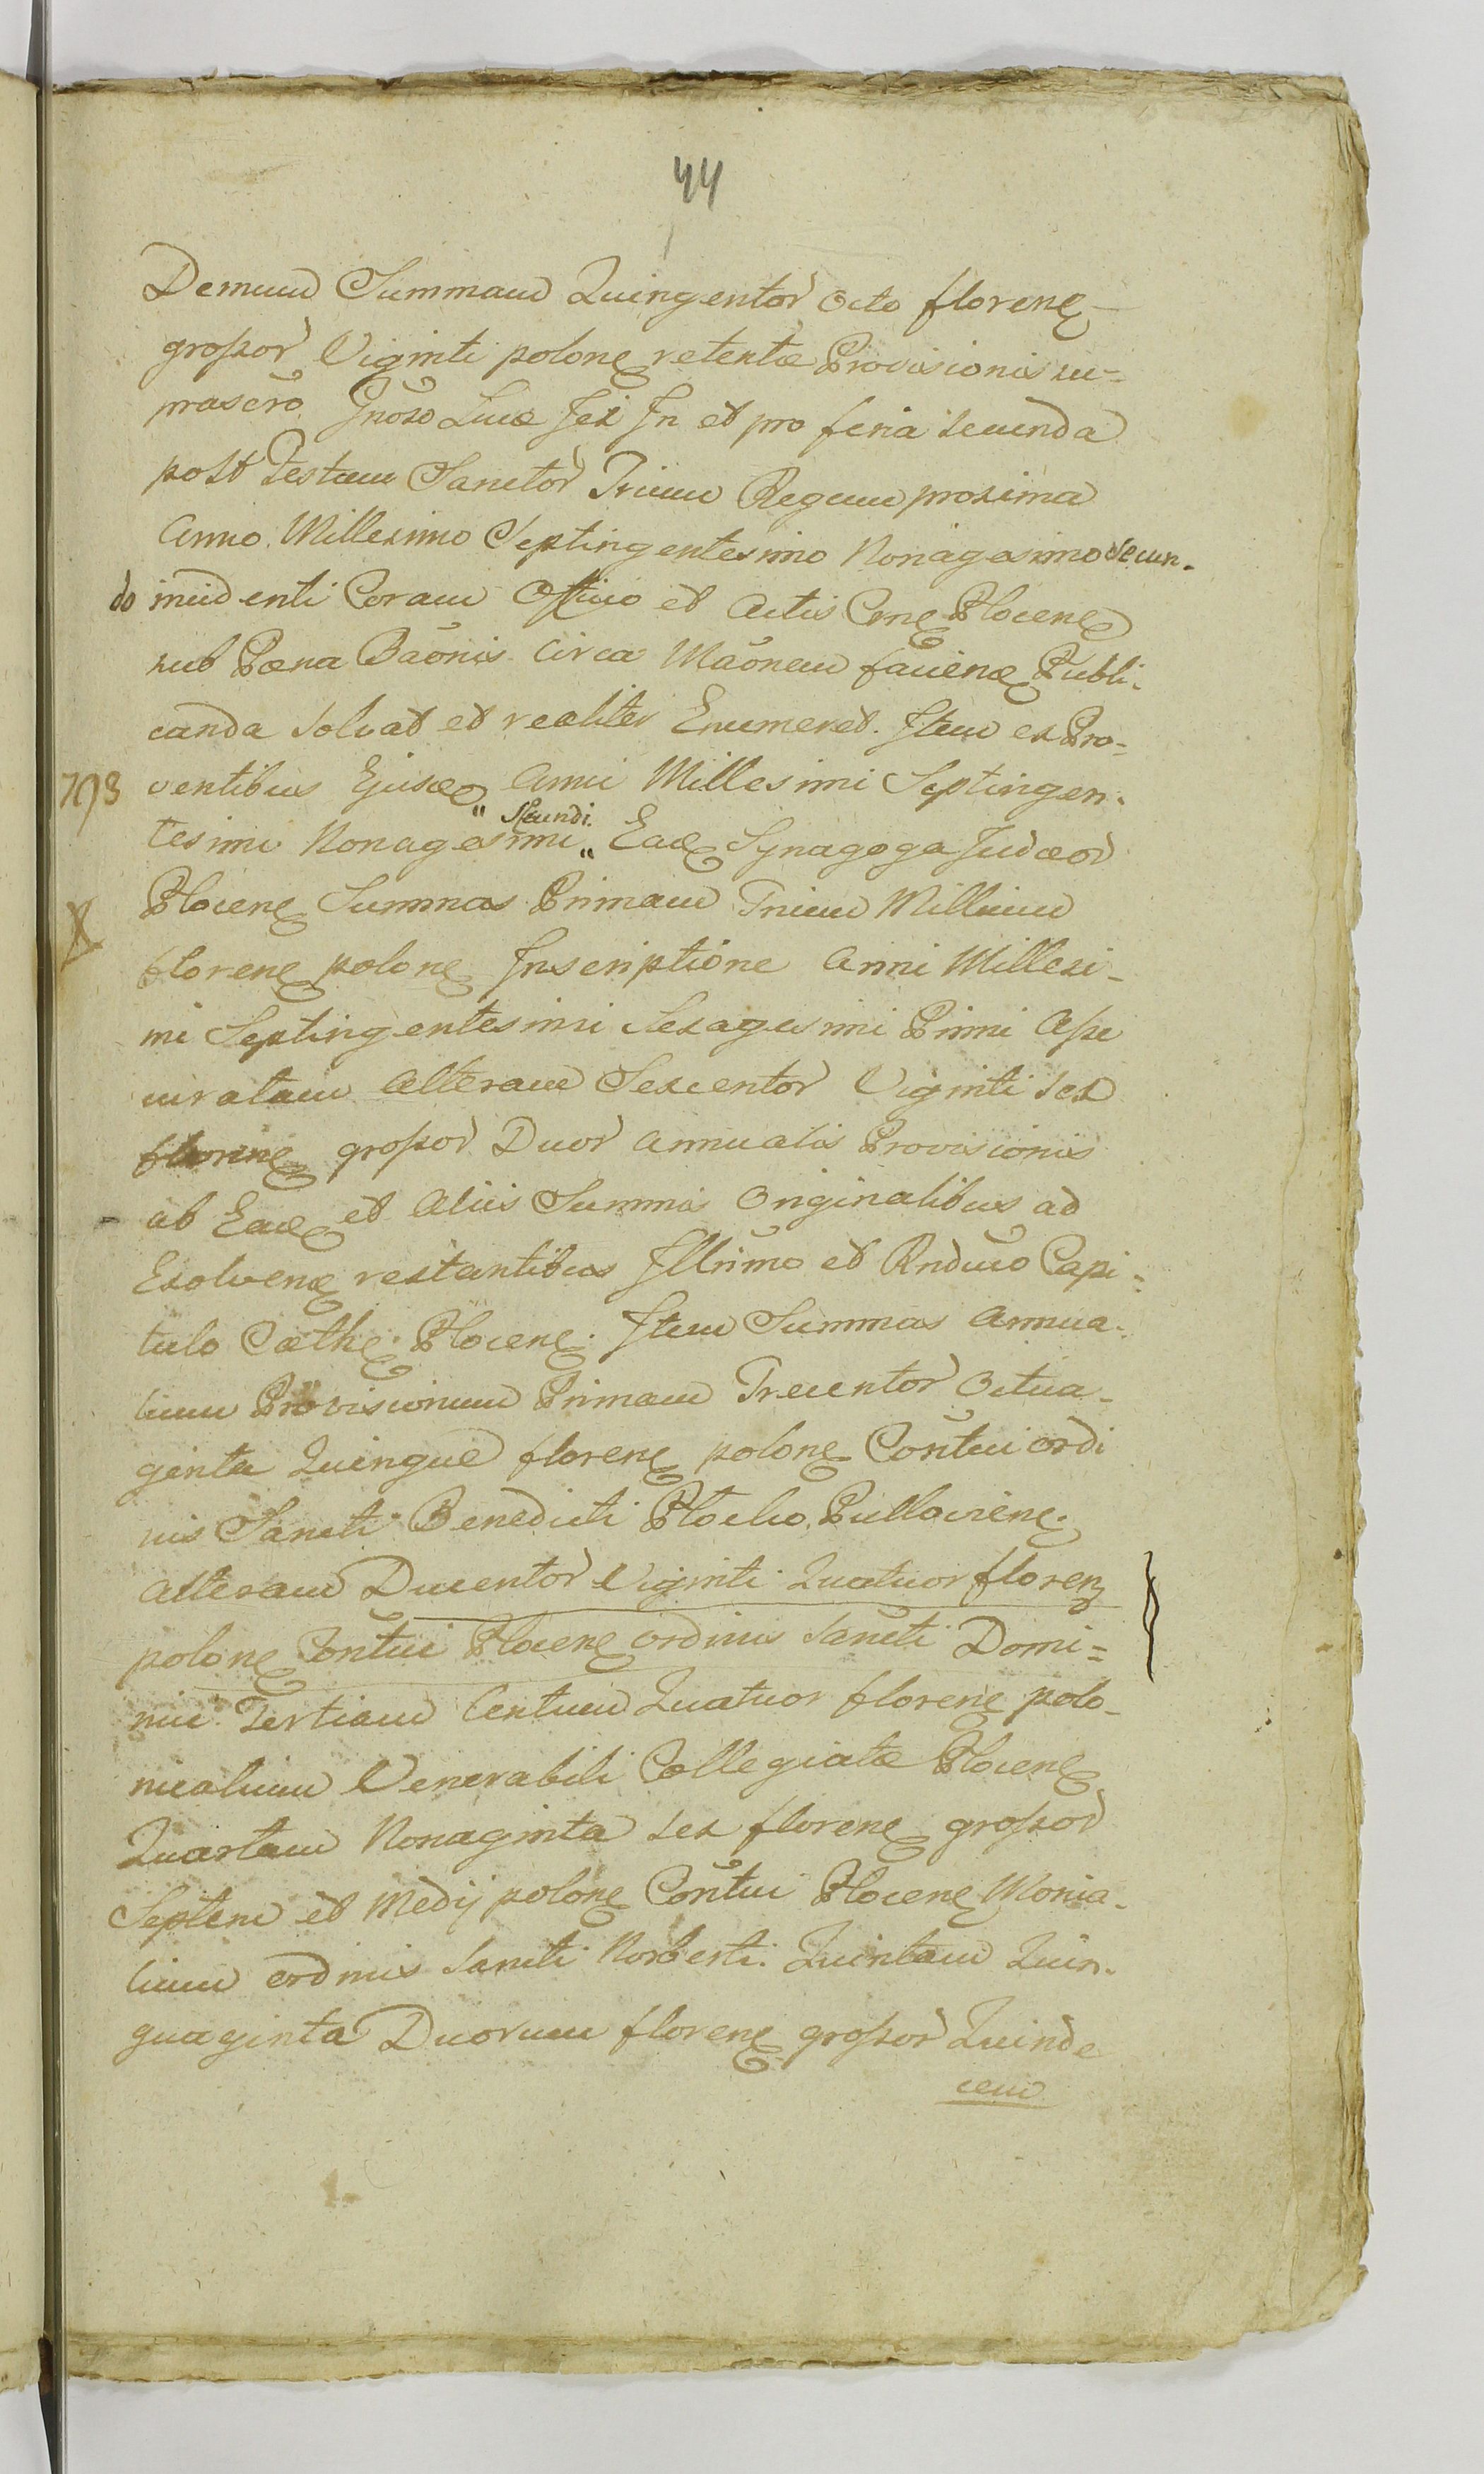 44
Demum Summam Quingentor Octo floreng
grossor Viginti polong retentæ Provisionis su-
prascro Gnoso Lucæ Jex In et pro feria secunda
post Festum Sanctor Trium Regum proxima
Anno Millesimo Septingentesimo Nonagesimo Secun-
do incidenti Coram Officio et Actis Cnng Ploceng
sub Pæna Baõnis circa Maõnem faciend Publi-
canda Solvat et realiter Enumeret. Item ex Pro-
793 ventibus Ejusdg Anni Millesimi Septingen-
Secundi.
tesimi Nonagesimi Eadg Synagoga Judæor
Ploceng Summas Primam Trium Millium
floreng polong Inscriptione Anni Millesi-
mi Septingentesimi Sexagesimi Primi Asse
curatam Alteram Sexcentor Viginti sex
floreng grossor Duor annualis Provisionis
ab Eadg et Aliis Summis Originalibus ad
Exolveng restantibus Illrimo et Rndmo Capi-
tulo Cathg. Ploceng. Item Summas Annua-
lium Provisionum Primam Trecentor Octua-
ginta Quinque floreng polong Cõntui Ordi
nis Sancti Benedicti Plocko
Alteram Ducentor Viginti Quatuor floreng
polong Cõntui Ploceng Ordinis Sancti Domi-
nici Tertiam Centum Quatuor floreng polo-
nicalium Venerabili Collegiatæ Ploceng
Quartam Nonaginta sex floreng grossor
Septem et Medij polong Cõntui Ploceng Monia-
lium ordinis Sancti Norberti. Quintam Quin-
quaginta Duorum floreng grossor Quinde
cem